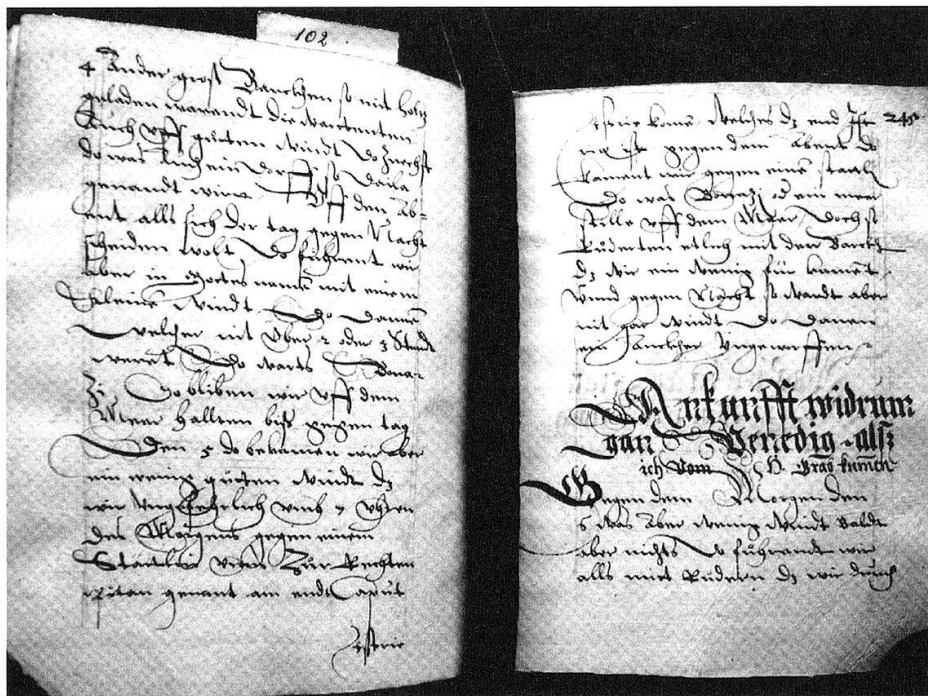 102
4 Ander gross Barckhen so mit holtz
geladen warendt die warttenten
Auch uff guten windt Do Zuechst
do was Auch ein dorff ist
genandt wir Uff den Ab-
ent alls sich der tag gegen Nacht
scheiden wolt do fuhrent wir
aber in Gottes namen mit einem
Kleinen windt Do dannen
welcher nit Über 2 oder 3 Stundt
werett Do warts Bona-
Zi. So bliben wir uff dem
Meer hallten biss gegen tag
Den 5 do bekamen wir aber
ein wenig guten windt dz
wir Ungefehrlich umb 7 Uhren
des Morgens gegen einem
Stättlin Zur Rechten
genant am endt Caput
Isterie
245
Isterie kamen welches dz end Iste
rie ist gegen dem Abent do
kament wir gegen einem stättli
Do was Bonazi ein meer
stille uff dem Meer doch so
Ruderten etlich mit der Barckh
dz wir ein wenig für kament
Unnd gegen Nacht so wardt aber
nit gar windt Do danen
Ancker Ussgeworffen
Ankunfft widrum
gan Venedig alss
ich Vom H. Grab kummen
Gegen dem Morgen den
6 was Aber wenig windt baldt
aber nichts do fuhrendt wir
alls mit Rudern dz wir durch